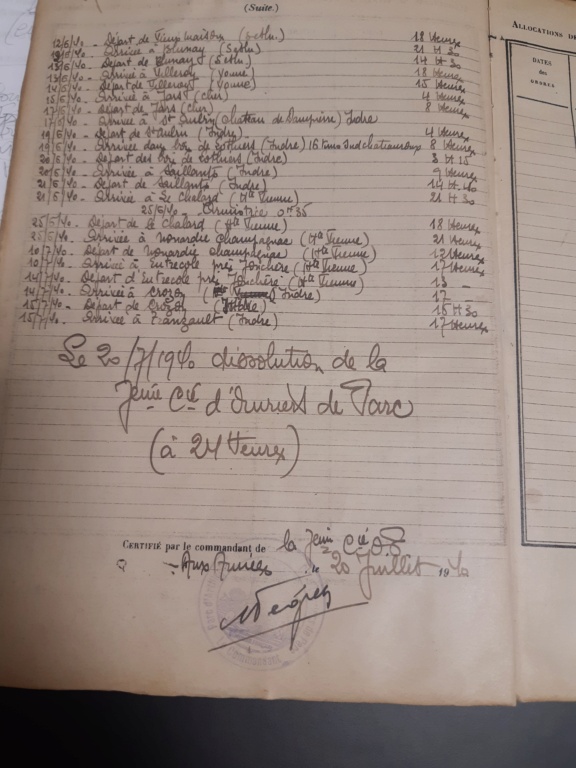 (Suite.)
ALLOCATIONS DE
DATES
des
ORDRES
12/6/40 - Départ de Vieux Maisons 18 Heures
Arrivée à Blunay 21 H 30
13/6/40 - Départ de Blunay 14 H 30
13/6/40 - Arrivée à Villeroy (Yonne) 18 Heures
14/6/40 - Départ de Villeroy (Yonne) 15 Heures
15/6/40 - Arrivée à Jars (Cher) 4 Heures
17/6/40 - Départ de Jars (Cher) 8 Heures
17/6/40 - Arrivée à St (Chateau de Dampierre) Indre
19/6/40 - Départ de St (Indre) 4 Heures
19/6/40 - Arrivée dans bois de (Indre) 16 Kms Sud Chateauroux 8 Heures
20/6/40 - Départ des bois de (Indre) 3 H 15
20/6/40 - Arrivée à (Indre) 9 Heures
21/6/40 - Départ de (Indre) 14 H 40
21/6/40 - Arrivée à Le Chalard (Hte Vienne) 21 H 30
25/6/40 - Armistice 0 H 35
25/6/40 - Départ de Le Chalard (Hte Vienne) 18 Heures
25/6/40 - Arrivée à Monardie Champagnac (Hte Vienne) 21 Heures
10/7/40 - Départ de Monardie Champagnac (Hte Vienne) 12 Heures
10/7/40 - Arrivée à Entrecole près Jonchère (Hte Vienne) 17 Heures
14/7/40 - Départ d'Entrecole près Jonchère (Hte Vienne) 13 -
14/7/40 - Arrivée à Crozon Indre) 17 -
15/7/40 - Départ de Crozon (Indre) 15 H 30
15/7/40 - Arrivée à Tranzault (Indre) 17 Heures
Le 20/7/1940 dissolution de la
7eme Cie d'Ouvriers de Parc
(à 24 Heures)
CERTIFIÉ par le commandant de la 7eme Cie O.P.
Aux Armées le 20 Juillet 1940